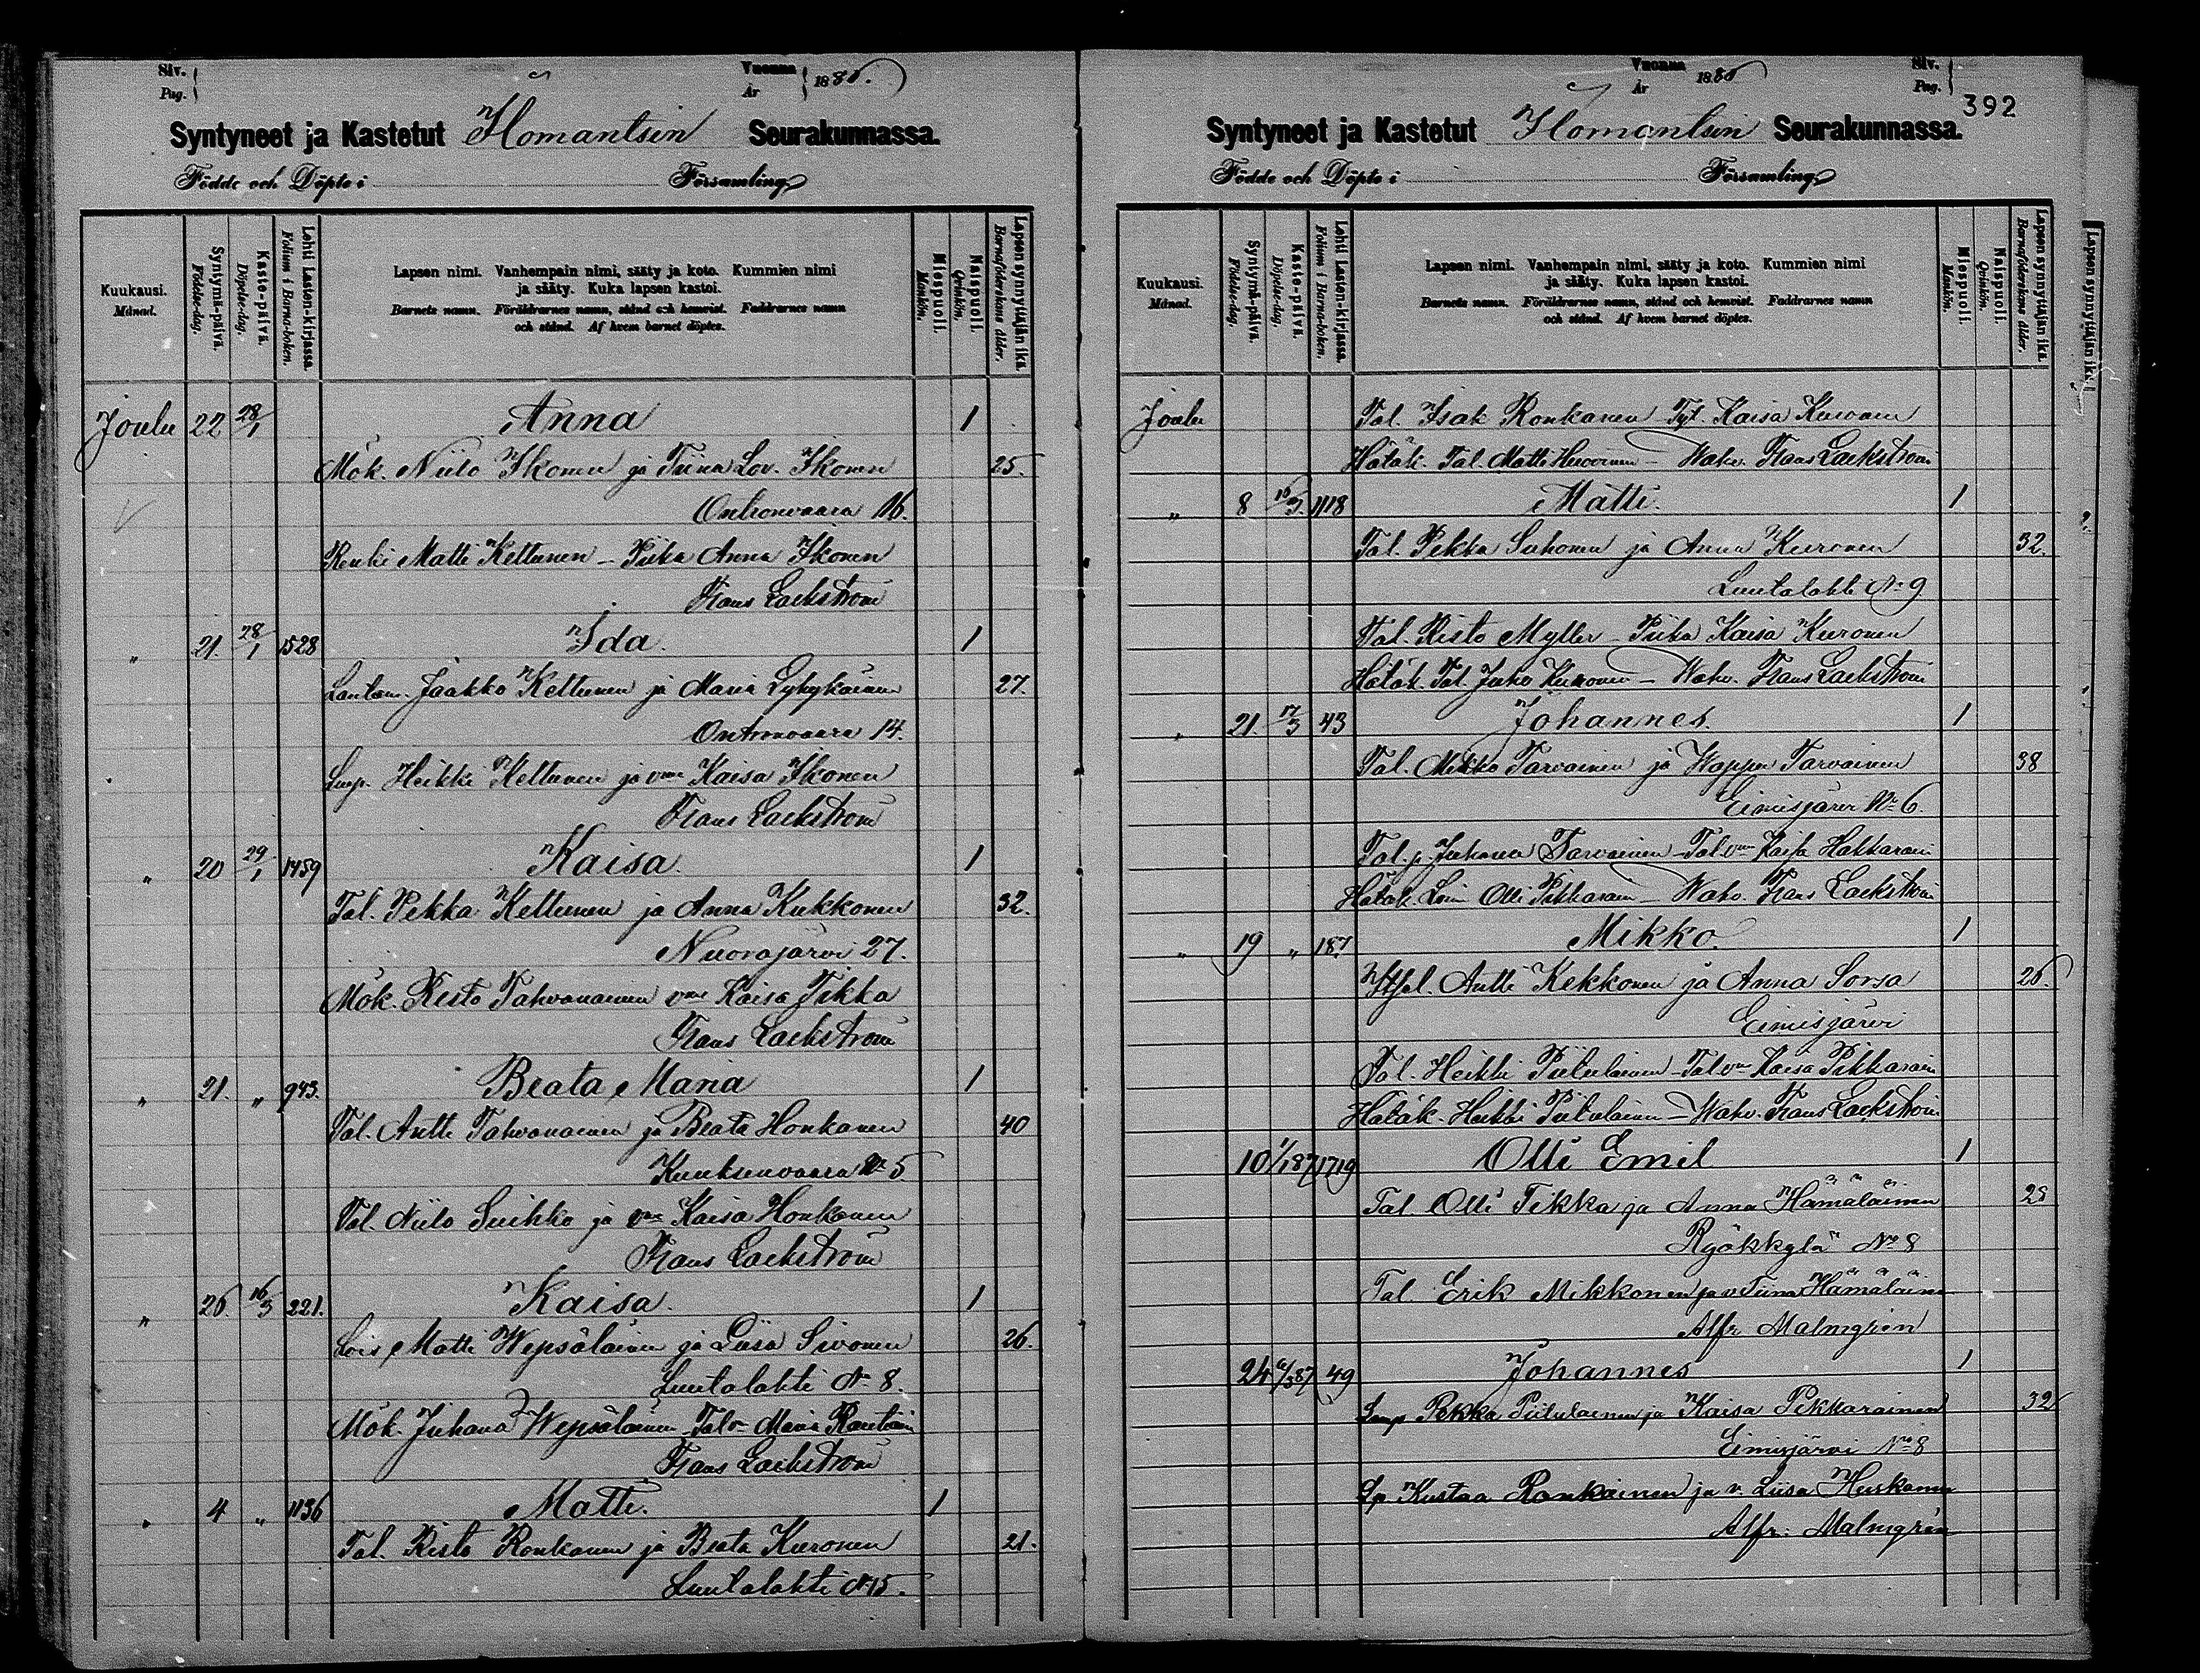 Siv.
Pag.
Vuonna
År
1886.
Syntyneet ja Kastetut Ilomantsin Seurakunnassa.
Födde och Döpte i Församling
Kuukausi.
Månad.
Syntymä-päivä.
Födelse-dag.
Kaste-päivä.
Döpelse-dag.
Lehti Lasten-kirjassa.
Folium i Barna-boken.
Lapsen nimi. Vanhempain nimi, sääty ja koto. Kummien nimi
ja sääty. Kuka lapsen kastoi.
Barnets namn. Föräldrarnes namn, stånd och hemvist. Faddrarnes namn
och stånd. Af hvem barnet döptes.
Miespuoli.
Mankön.
Naispuoli.
Qvinkön.
Lapsen synnyttäjän ikä.
Barnaföderskans ålder.
Joulu 22 28/1 Anna 1
Mök. Niilo Ikonen ja Tiina Lov. Ikonen 25.
Ontronvaara 16.
Renki Matti Kettunen - Piika Anna Ikonen
Frans Lackström
" 21. 28/1 1528 Ida. 1
Lautam. Jaakko Kettunen ja Maria Lyhykäinen 27.
Ontronvaara 14.
Lmp. Heikki Kettunen ja vmo Kaisa Ikonen
Frans Lackström
" 20 29/1 1459 Kaisa. 1
Tal. Pekka Kettunen ja Anna Kukkonen 32.
Nuorajärvi 27.
Mök. Risto Tahvanainen vmo Kaisa Tikka
Frans Lackström
" 21. " 943. Beata Maria 1
Tal. Antti Tahvanainen ja Beata Honkanen 40
Kuuksenvaara № 5
Tal. Niilo Suihko ja vmo Kaisa Honkanen
Frans Lackström
" 26. 16/3 221. Kaisa. 1
Lois. Matti Wepsäläinen ja Liisa Sivonen 26.
Luutalahti № 8.
Mök. Juhana Wepsäläinen - Talv. Maria Rautiain
Frans Lackström
" 4 " 1136 Matti. 1
Tal. Risto Ronkanen ja Beata Kuronen 21.
Luutalahti № 15.
Vuonna
År
1886
Siv.
Pag.
392
Syntyneet ja Kastetut Ilomantsin Seurakunnassa.
Födde och Döpte i Församling
Kuukausi.
Månad.
Syntymä-päivä.
Födelse-dag.
Kaste-päivä.
Döpelse-dag.
Lehti Lasten-kirjassa.
Folium i Barna-boken.
Lapsen nimi. Vanhempain nimi, sääty ja koto. Kummien nimi
ja sääty. Kuka lapsen kastoi.
Barnets namn. Föräldrarnes namn, stånd och hemvist. Faddrarnes namn
och stånd. Af hvem barnet döptes.
Miespuoli.
Mankön.
Naispuoli.
Qvinkön.
Lapsen synnyttäjän ikä.
Barnaföderskans ålder.
Lapsen synnyttäjän ikä
Joulu Tal. Isak Ronkanen - Tyt. Kaisa Kuronen
Hätäk. Tal. Matti - Wahv. Frans Lackström
" 8 16/3. 1118 Matti. 1
Tal. Pekka Suhonen ja Anna Kuronen 32.
Luutalahti № 9
Tal. Risto Myller - Piika Kaisa Kuronen
Hätäk. Tal. Juho Kuronen - Wahv. Frans Lackström
" 21. 17/3 43 Johannes. 1
Tal. Mikko Tarvainen ja Wappu Tarvainen 38
Eimisjärvi № 6.
Tal. p. Juhana Tarvainen - Tal. vmo Kaisa Hakkarain
Hätäk. Lois Olli Pikkarain - Wahv. Frans Lackström
" 19 " 187. Mikko. 1
Antti Kekkonen ja Anna Sorsa 26.
Eimisjärvi
Tal. Heikki Piitulainen - Tal vmo Kaisa Pikkarain
Hätäk. Heikki Piitulainen - Wahv. Frans Lackström
10 1/1 87 1719 Olli Emil 1
Tal Olli Tikka ja Anna Hämäläinen 25
Ryökkylä № 8
Tal. Erik Mikkonen ja v Tiina Hämäläin
Alfr Malmgrén
24 6/3 87 49 Johannes 1
Lmp Pekka Piitulainen ja Kaisa Pikkarainen 32
Eimisjärvi № 8
Lp Kustaa Ronkainen ja v. Liisa Hurskainen
Alfr. Malmgrén